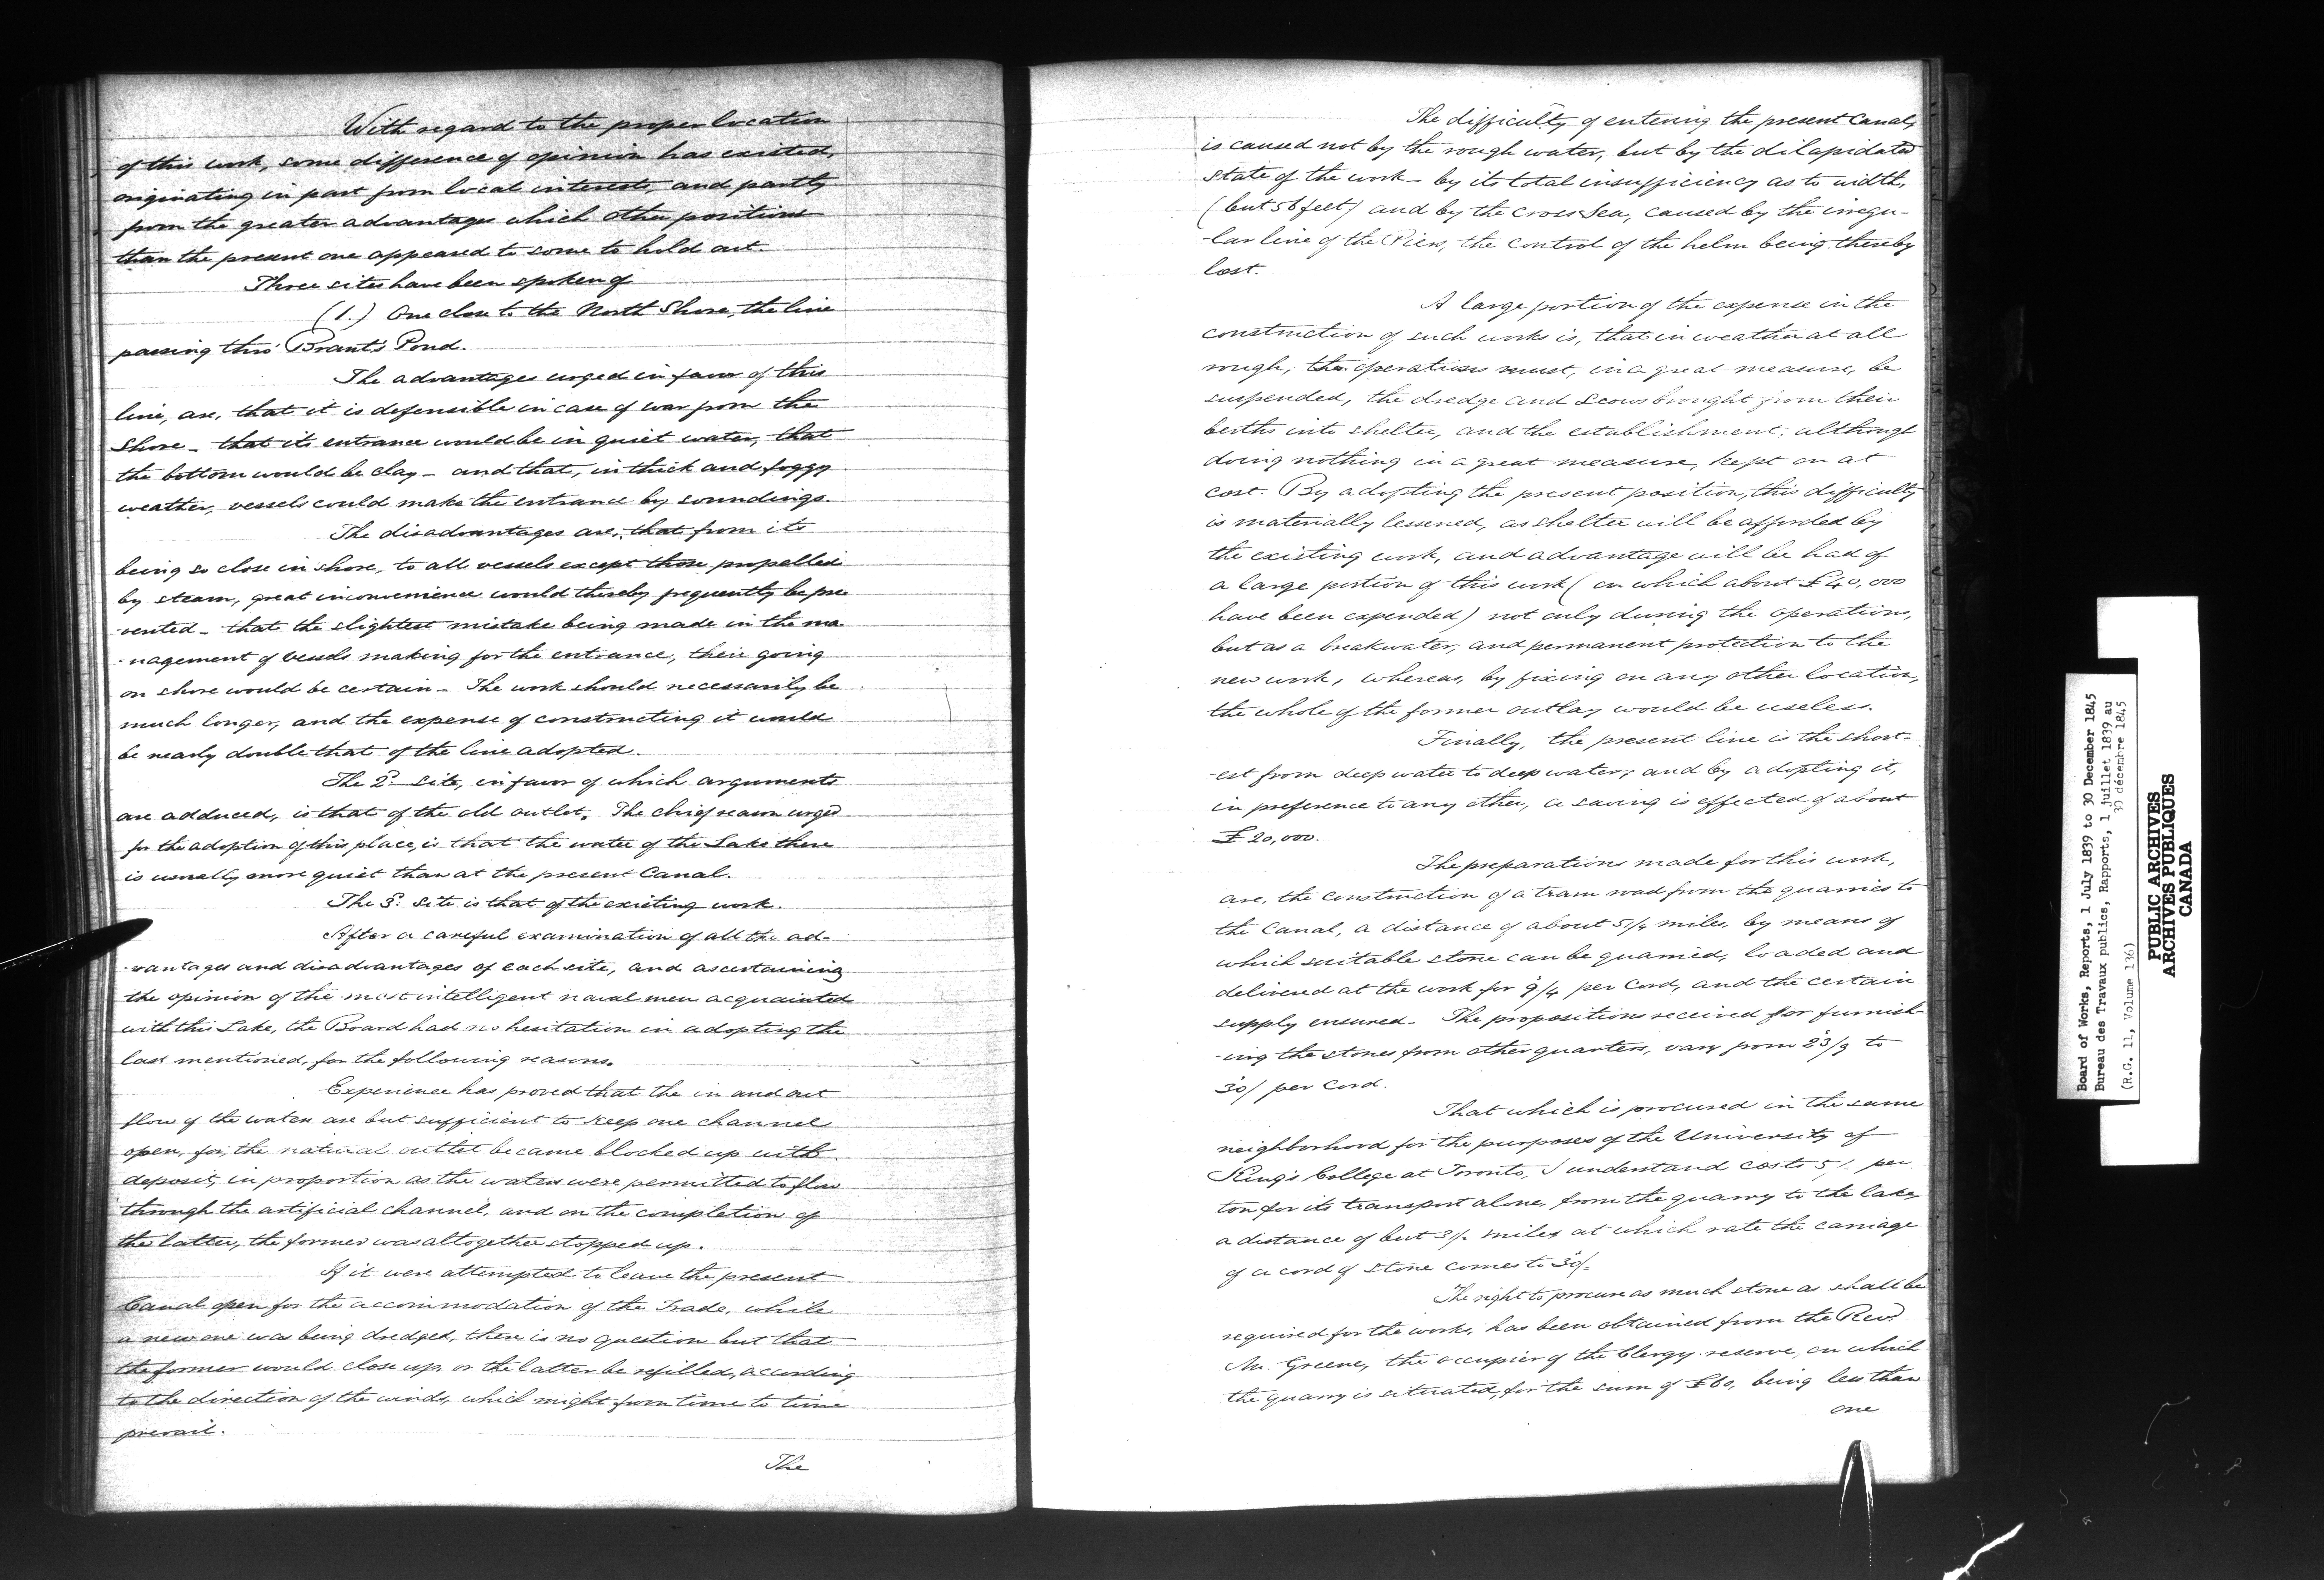 With regard to the proper location
of this work, some difference of opinion has existed,
originating in part from local interests, and partly
from the greater advantages which other positions
than the present one appeared to some to hold out.
Three sites have been spoken of
(1.) One close to the North Shore, the line
passing thro' Brant's Pond.
The advantages urged in favor of this
line, are, that it is defensible in case of war from the
Shore – that its entrance would be in quiet water, that
the bottom would be clay – and that, in thick and foggy
weather, vessels could make the entrance by soundings.
The disadvantages are, that from its
being so close in shore, to all vessels except those propelled
by steam, great inconvenience would thereby frequently be pre
-sented – that the slightest mistake being made in the ma-
-nagement of vessels making for the entrance, their going
on shore would be certain – The work should necessarily be
much longer, and the expense of constructing it would
be nearly double that of the line adopted.
The 2d. site, in favor of which arguments
are adduced, is that of the old outlet. The chief reason urged
for the adoption of this place, is that the water of the Lake there
is usually more quiet than at the present Canal.
The 3d. site is that of the existing work.
After a careful examination of all the ad-
-vantages and disadvantages of each site, and ascertaining
the opinion of the most intelligent naval men acquainted
with this Lake, the Board had no hesitation in adopting the
last mentioned, for the following reasons.
Experience has proved that the in and out
flow of the waters are but sufficient to keep one channel
open, for, the natural outlet became blocked up with
deposit, in proportion as the waters were permitted to flow
through the artificial channel, and on the completion of
the latter, the former was altogether stopped up.
If it were attempted to leave the present
Canal open for the accommodation of the Trade, while
a new one was being dredged, there is no question but that
the former would close up, or the latter be refilled, according
to the direction of the winds, which might from time to time
prevail.
The
The difficulty of entering the present Canal,
is caused not by the rough water, but by the dilapidated
state of the work – by its total insufficiency as to width,
(but 56 feet) and by the cross sea, caused by the irregu-
-lar line of the Piers, the control of the helm being thereby
lost.
A large portion of the expense in the
construction of such works is, that in weather at all
rough, the operations must, in a great measure, be
suspended, the dredge and scows brought from their
berths into shelter, and the establishment, although
doing nothing in a great measure, kept on at
cost. By adopting the present position, this difficulty
is materially lessened, as shelter will be afforded by
the existing work, and advantage will be had of
a large portion of this work (on which about £40,000
have been expended) not only during the operations,
but as a breakwater, and permanent protection to the
new work, whereas, by fixing on any other location,
the whole of the former outlay would be useless.
Finally, the present line is the short-
-est from deep water to deep water; and by adopting it,
in preference to any other, a saving is effected of about
£20,000.
The preparations made for this work,
are, the construction of a tram road from the quarries to
the Canal, a distance of about 5 1/4 miles, by means of
which suitable stone can be quarried, loaded and
delivered at the work for 9/4 per Cord, and the certain
supply ensured – The propositions received for furnish-
-ing the stones from other quarters, vary from 23/9 to
30/ per Cord.
That which is procured in the same
neighborhood for the purposes of the University of
King's College at Toronto, I understand costs 5/. per
ton for its transport alone, from the quarry to the lake,
a distance of but miles at which rate the carriage
of a cord of stone comes to 30/-
The right to procure as much stone as shall be
required for the works, has been obtained from the Revd.
Mr. Greene, the occupier of the Clergy reserve, on which
the quarry is situated, for the sum of £60, being less than
one
Board of Works, Reports, 1 July 1839 to 30 December 1845
Bureau des Travaux publics, Rapports, 1 juillet 1839 au
30 décembre 1845
(R.G. 11, Volume 136)
PUBLIC ARCHIVES
ARCHIVES PUBLIQUES
CANADA